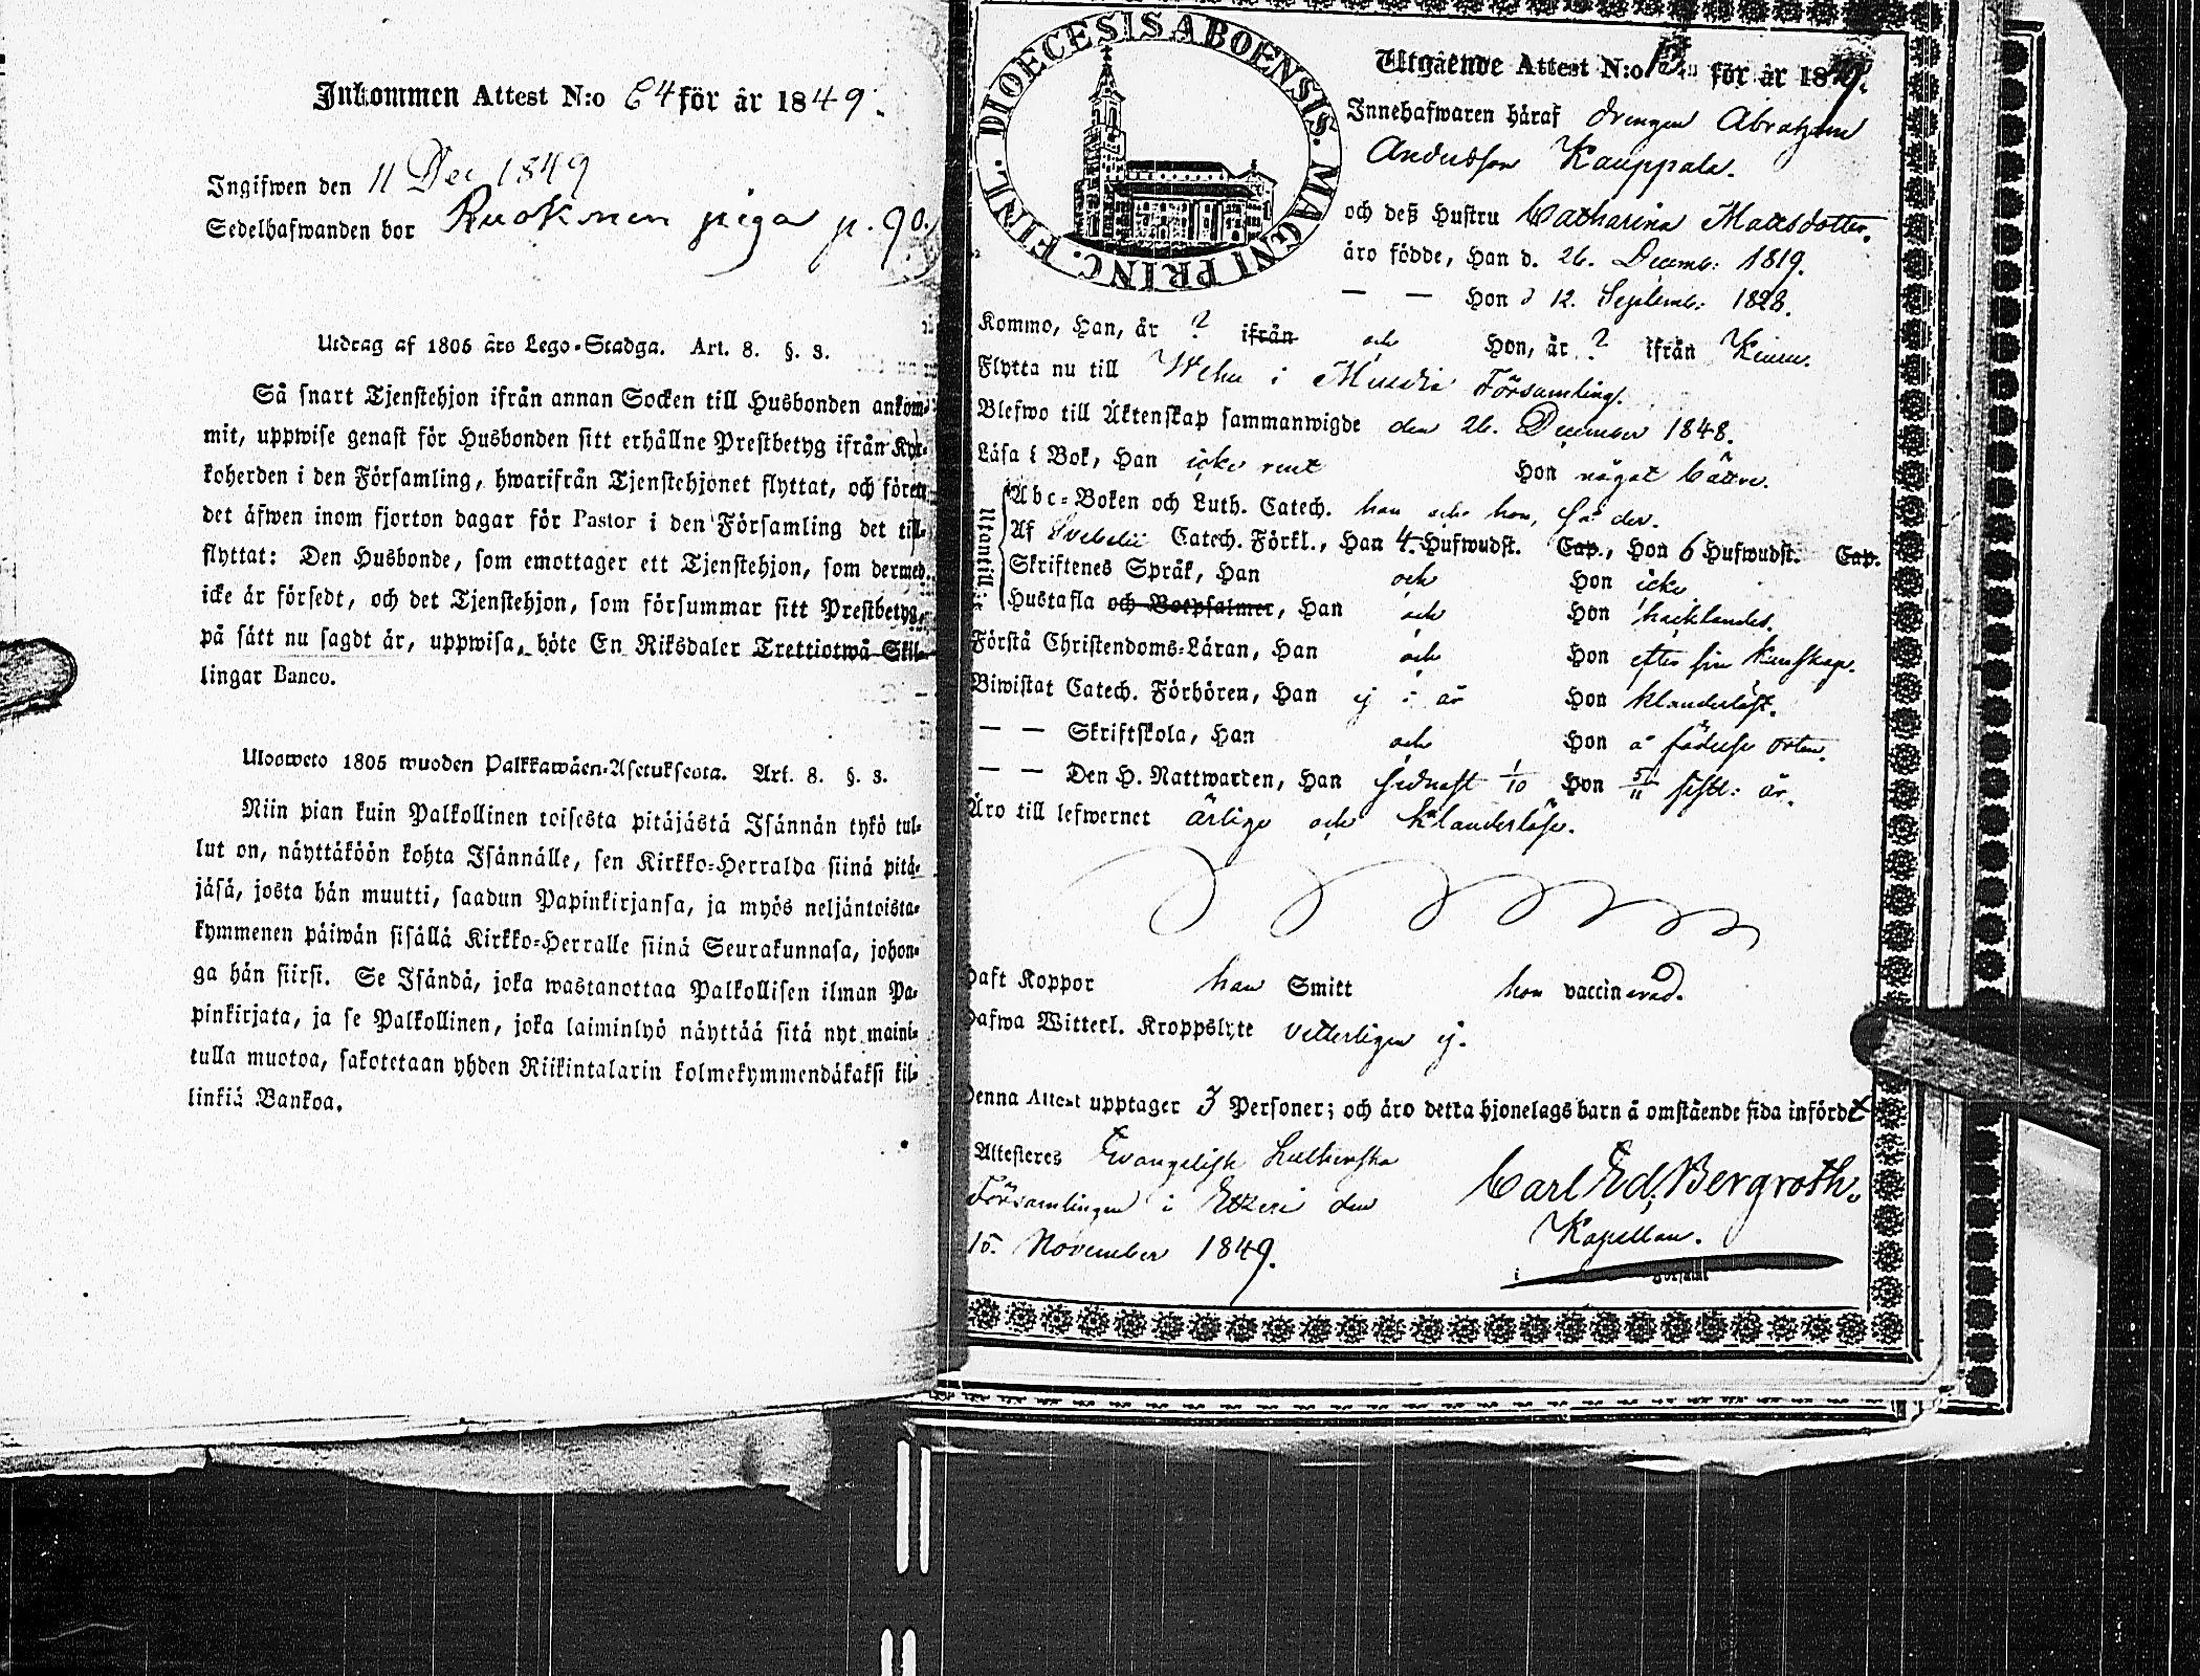 Inkommen Attest N:o 64 för år 1849.
Ingifwen den 11 Dec 1849
Sedelhafwanden bor Ruokonen piga p. 90.
Utdrag af 1805 års Lego-Stadga. Art. 8. §. 3.
Så snart Tjenstehjon ifrån annan Socken till Husbonden ankom-
mit, uppwise genast för Husbonden sitt erhållne Prestbetyg ifrån Kyr-
koherden i den Församling, hwarifrån Tjenstehjonet flyttat, och förete
det äfwen inom fjorton dagar för Pastor i den Församling det till-
flyttat: Den Husbonde, som emottager ett Tjenstehjon, som dermed
icke är försedt, och det Tjenstehjon, som försummar sitt Prestbetyg,
på sätt nu sagdt är, uppwisa, böte En Riksdaler Trettiotwå Skil-
lingar Banco.
Ulosweto 1805 wuoden Palkkawäen-Asetuksesta. Art. 8. §. 3.
Niin pian kuin Palkollinen toisesta pitäjästä Isännän tykö tul-
lut on, näyttäköön kohta Isännälle, sen Kirkko-Herralda siinä pitä-
jäsä, josta hän muutti, saadun Papinkirjansa, ja myös neljäntoista-
kymmenen päiwän sisällä Kirkko-Herralle siinä Seurakunnasa, johon-
ga hän siirsi. Se Isändä, joka wastanottaa Palkollisen ilman Pa-
pinkirjata, ja se Palkollinen, joka laiminlyö näyttää sitä nyt maini-
tulla muotoa, sakotetaan yhden Riikintalarin kolmekymmendäkaksi kil-
linkiä Bankoa.
DIOECESIS ABOENSIS. MAGNI PRINC. FINL.
Utgående Attest N:o för år 1849.
Innehafwaren häraf drengen Abraham
Andersson Kauppala.
och deß Hustru Catharina Mattsdotter.
äro födde, Han d. 26. Decemb: 1819.
— — Hon d 12. Septemb: 1828.
Kommo, Han, år ? ifrån och Hon, år ? ifrån
Flytta nu till Wehu i Församling.
Blefwo till Äktenskap sammanwigde den 26. December 1848.
Läsa i Bok, Han icke rent Hon något bättre.
Utantill:
Abc-Boken och Luth. Catech. han och hon,
Af Svebelii Catech. Förkl., Han 4. Hufwudst. Cap., Hon 6 Hufwudst. Cap.
Skriftenes Språk, Han och Hon icke
Hustafla och Botpsalmer, Han och Hon hacklandes.
Förstå Christendoms-Läran, Han och Hon efter sin kunskap.
Biwistat Catech. Förhören, Han ej i år Hon klanderlöst.
— — Skriftskola, Han och Hon å födelse orten.
— — Den H. Nattwarden, Han sednast 1/10 Hon 5/11 sistl: år.
Äro till lefwernet ärlige och klanderlöse.
Haft Koppor han Smitt hon vaccinerad.
Hafwa Witterl. Kroppslyte vetterligen ej.
Denna Attest upptager 3 Personer; och äro detta hjonelags barn å omstående sida infördt
Attesteres Evangelisk Lutherska
Församlingen i Etzeri den
15. November 1849.
Carl Ed. Bergroth.
Kapellan.